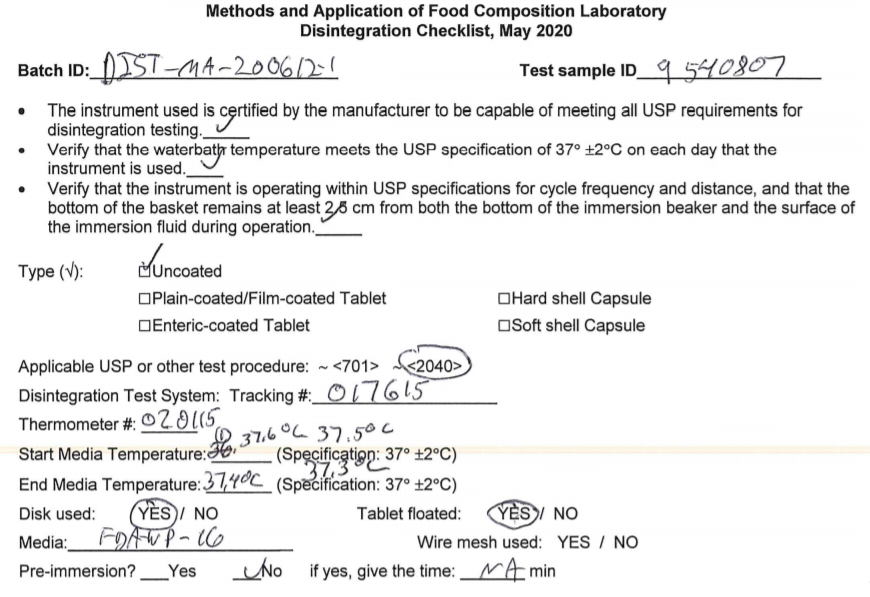 Methods and Application of Food Composition Laboratory
Disintegration Checklist, May 2020
Batch ID: DIST-MA-200612-1 Test sample ID 9540807
• The instrument used is certified by the manufacturer to be capable of meeting all USP requirements for
disintegration testing. ✓
• Verify that the waterbath temperature meets the USP specification of 37° ±2°C on each day that the
instrument is used. ✓
• Verify that the instrument is operating within USP specifications for cycle frequency and distance, and that the
bottom of the basket remains at least 2.5 cm from both the bottom of the immersion beaker and the surface of
the immersion fluid during operation. ✓
Type (√): ☑Uncoated
☐Plain-coated/Film-coated Tablet ☐Hard shell Capsule
☐Enteric-coated Tablet ☐Soft shell Capsule
Applicable USP or other test procedure: ~ <701> ~ <2040>
Disintegration Test System: Tracking #: 017615
Thermometer #: 020115
① 37.6°C 37.5°C
Start Media Temperature: 36. (Specification: 37° ±2°C)
37.3°C
End Media Temperature: 37.4°C (Specification: 37° ±2°C)
Disk used: YES / NO Tablet floated: YES / NO
Media: FDAWP-16 Wire mesh used: YES / NO
Pre-immersion? Yes ✓ No if yes, give the time: NA min